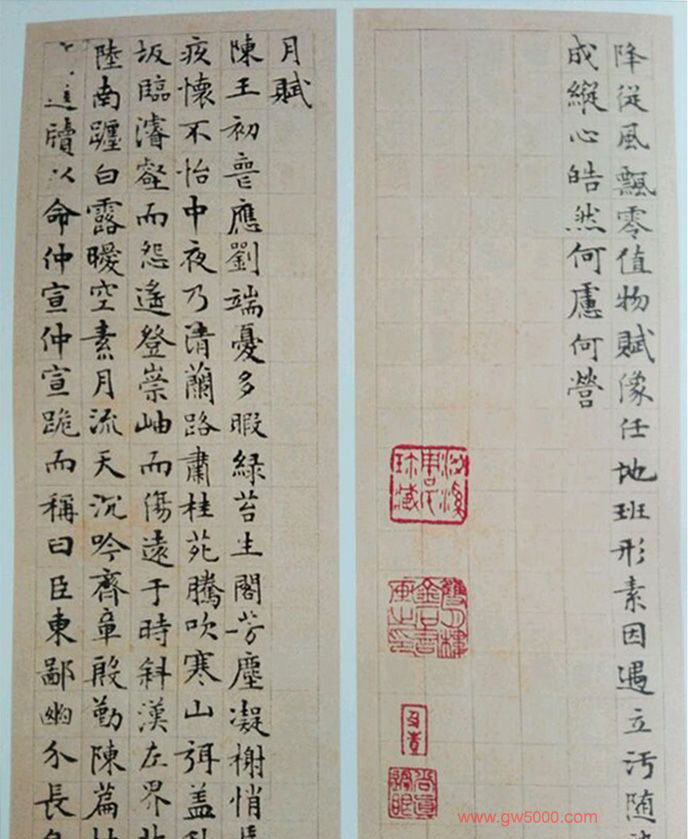 降從風飄零值物賦像任地班形素因遇立汚随
成縱心皓然何慮何營
月賦
陳王初喪應劉端憂多暇緑苔生閣芳塵凝榭悄
疚懷不怡中夜乃清蘭路肅桂苑騰吹寒山弭盖
坂臨濬壑而怨遥登崇岫而傷遠于時斜漢左界北
陸南躔白露曖空素月流天沉吟齊章殷勤陳篇
進牘以命仲宣仲宣跪而稱曰臣東鄙幽介長
www.gw5000.com